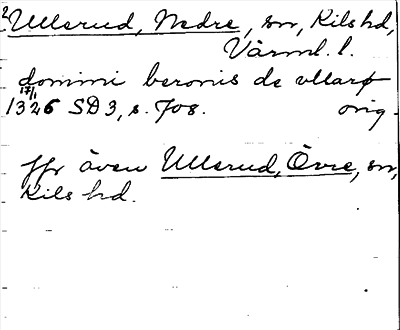 2 Ullerud, Nedre, sn, Kils hd,
Värml. l.
domini beronis de vllarø
17/1 1326 SD 3, s. 708. orig.
Jfr även Ullerud, Övre, sn,
Kils hd.